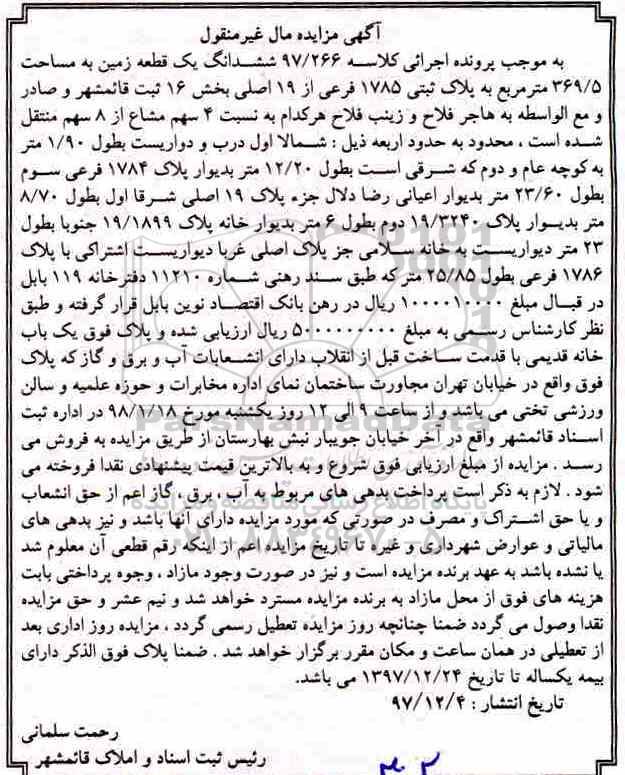 آگهی مزایده مال غیرمنقول
به موجب پرونده اجرائی کلاسه ۹۷/۲۶۶ ششدانگ یک قطعه زمین به مساحت
۳۶۹/۵ مترمربع به پلاک ثبتی ۱۷۸۵ فرعی از ۱۹ اصلی بخش ۱۶ ثبت قائمشهر و صادر
و مع الواسطه به هاجر فلاح و زینب فلاح هرکدام به نسبت ۴ سهم مشاع از ۸ سهم منتقل
شده است ، محدود به حدود اربعه ذیل : شمالا اول درب و دواریست بطول ۱/۹۰ متر
به کوچه عام و دوم که شرقی است بطول ۱۲/۲۰ متر بدیوار پلاک ۱۷۸۴ فرعی سوم
بطول ۲۳/۶۰ متر بدیوار اعیانی رضا دلال جزء پلاک ۱۹ اصلی شرقا اول بطول ۸/۷۰
متر بدیوار پلاک ۱۹/۳۲۴۰ دوم بطول ۶ متر بدیوار خانه پلاک ۱۹/۱۸۹۹ جنوبا بطول
۲۳ متر دیواریست به خانه سلامی جز پلاک اصلی غربا دیواریست اشتراکی با پلاک
۱۷۸۶ فرعی بطول ۲۵/۸۵ متر که طبق سند رهنی شماره ۱۱۲۱۰ دفترخانه ۱۱۹ بابل
در قبال مبلغ ۱۰۰۰۰۱۰۰۰۰ ریال در رهن بانک اقتصاد نوین بابل قرار گرفته و طبق
نظر کارشناس رسمی به مبلغ ۵۰۰۰۰۰۰۰۰۰ ریال ارزیابی شده و پلاک فوق یک باب
خانه قدیمی با قدمت ساخت قبل از انقلاب دارای انشعابات آب و برق و گاز که پلاک
فوق واقع در خیابان تهران مجاورت ساختمان نمای اداره مخابرات و حوزه علمیه و سالن
ورزشی تختی می باشد و از ساعت ۹ الی ۱۲ روز یکشنبه مورخ ۹۸/۱/۱۸ در اداره ثبت
اسناد قائمشهر واقع در آخر خیابان جویبار نبش بهارستان از طریق مزایده به فروش می
رسد . مزایده از مبلغ ارزیابی فوق شروع و به بالاترین قیمت پیشنهادی نقدا فروخته می
شود . لازم به ذکر است پرداخت بدهی های مربوط به آب ، برق ، گاز اعم از حق انشعاب
و یا حق اشتراک و مصرف در صورتی که مورد مزایده دارای آنها باشد و نیز بدهی های
مالیاتی و عوارض شهرداری و غیره تا تاریخ مزایده اعم از اینکه رقم قطعی آن معلوم شد
یا نشده باشد به عهد برنده مزایده است و نیز در صورت وجود مازاد ، وجوه پرداختی بابت
هزینه های فوق از محل مازاد به برنده مزایده مسترد خواهد شد و نیم عشر و حق مزایده
نقدا وصول می گردد ضمنا چنانچه روز مزایده تعطیل رسمی گردد ، مزایده روز اداری بعد
از تعطیلی در همان ساعت و مکان مقرر برگزار خواهد شد . ضمنا پلاک فوق الذکر دارای
بیمه یکساله تا تاریخ ۱۳۹۷/۱۲/۲۴ می باشد.
تاریخ انتشار : ۹۷/۱۲/۴
رحمت سلمانی
رئیس ثبت اسناد و املاک قائمشهر
ParsNamadData
پایگاه اطلاع رسانی مناقصه و مزایده
۰۲۱-۸۸۳۴۹۶۷۰-۵